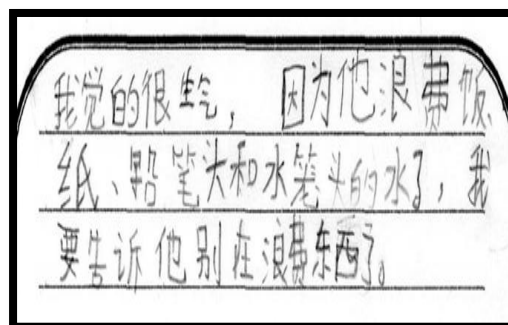 我觉的很生气，因为他浪费饭、
纸、铅笔头和水笔头的水了，我
要告诉他别在浪费东西了。